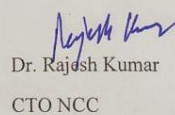 Rajesh Kumar
Dr. Rajesh Kumar
CTO NCC